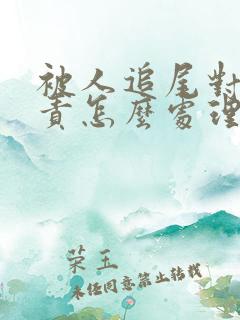 被人追尾對
責怎麼處理
荣玉
未经同意禁止转载